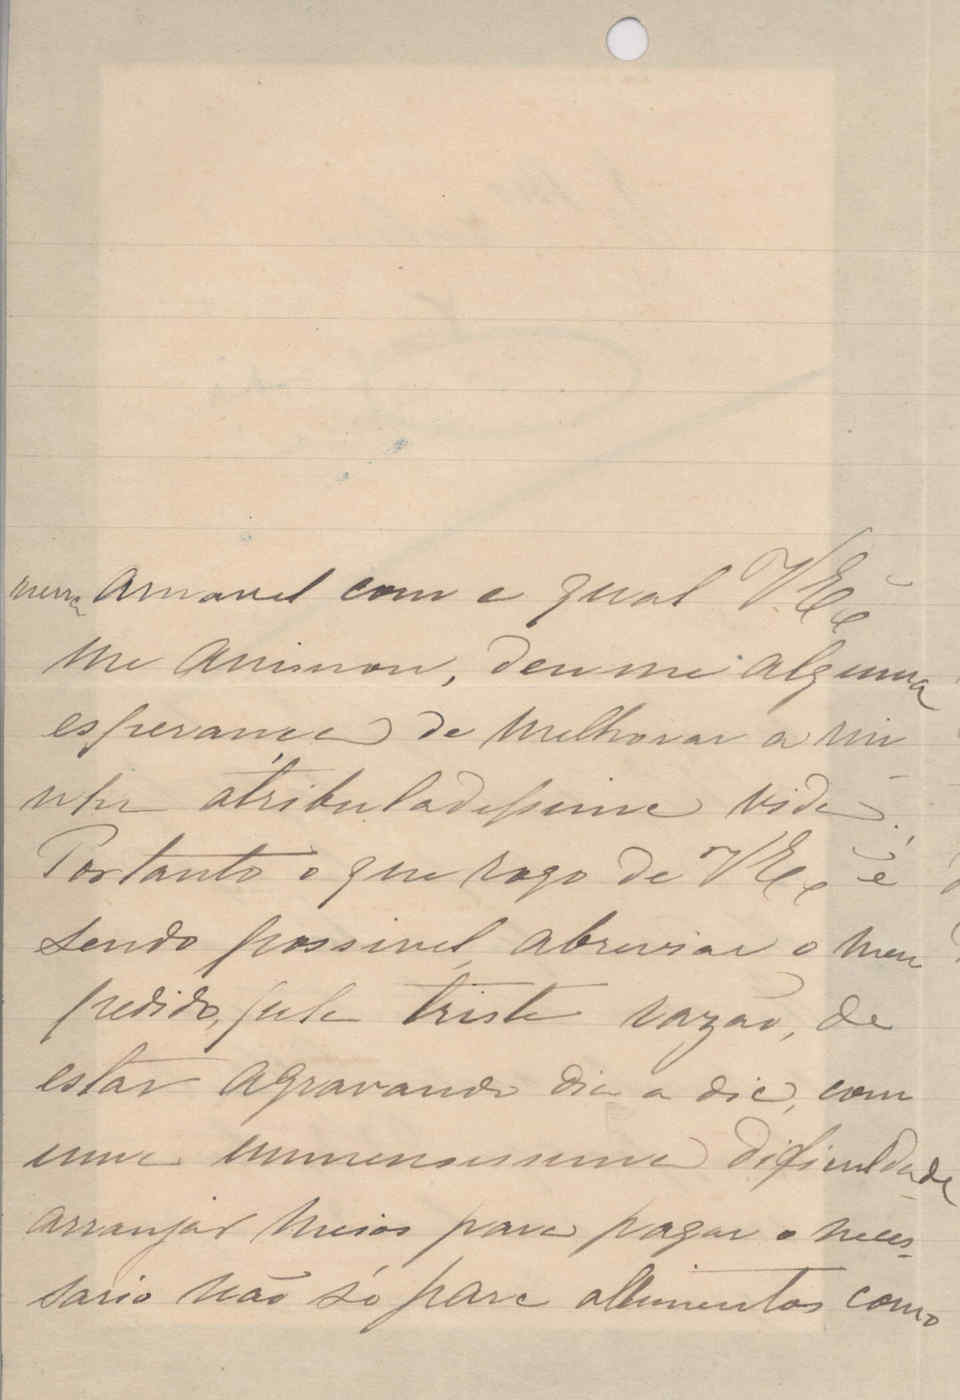 neira amavel com a qual V. Exª
me animou, deu me alguma
esperança de melhorar a mi
nha atribuladissima vida.
Portanto o que rogo de V Exª é
sendo possivel, abreviar o meu
pedido, pela triste razão, de
estar agravando dia a dia, com
uma immensissima dificuldade
arranjar meios para pagar o neces-
sario não só para allimentos como